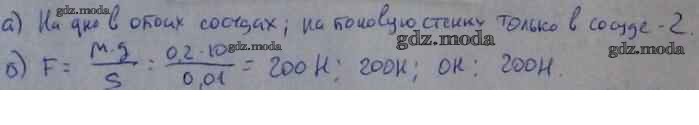 а) На дно в обоих сосудах; на боковую стенку только в сосуде-2.
б) F = m·g / S = 0,2·10 / 0,01 = 200 Н; 200Н; 0Н; 200Н.
gdz.moda
gdz.moda
gdz.moda
gdz.moda
gdz.moda
gdz.moda
gdz.moda